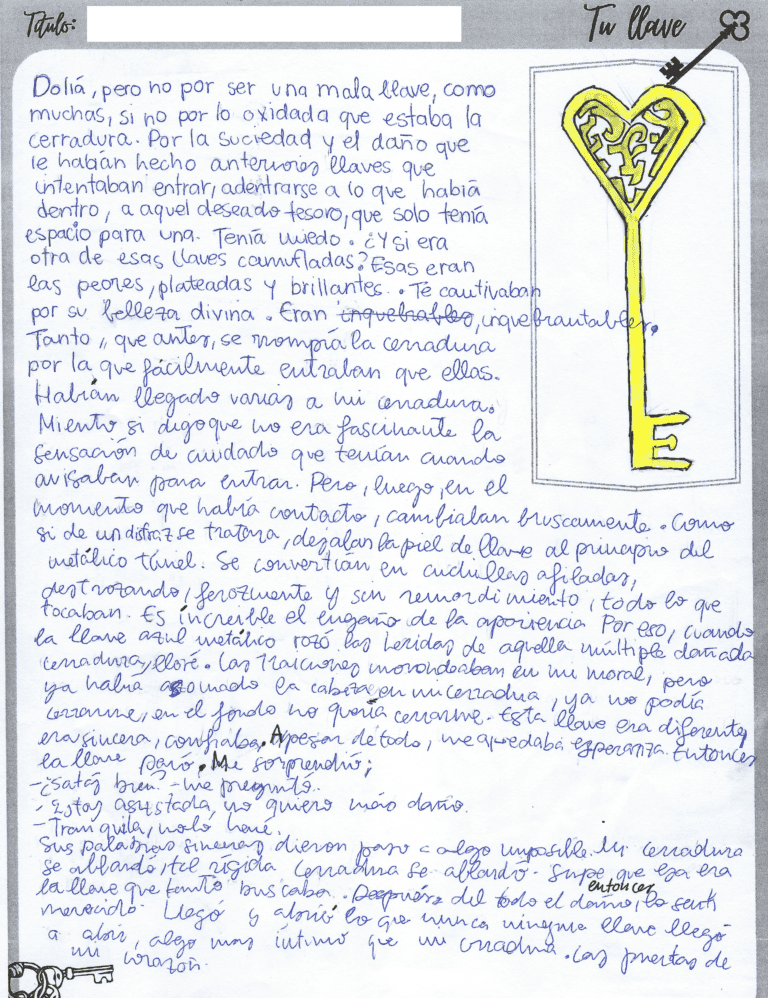 Título:
Tu llave
Doliá, pero no por ser una mala llave, como
muchas, si no por lo oxidada que estaba la
cerradura. Por la suciedad y el daño que
le habían hecho anteriores llaves que
intentaban entrar, adentrarse a lo que había
dentro, a aquel deseado tesoro, que solo tenía
espacio para una. Tenía miedo. ¿Y si era
otra de esas llaves camufladas? Esas eran
las peores, plateadas y brillantes. Te cautivaban
por su belleza divina. Eran inquebrables, inquebrantables.
Tanto, que antes, se rrompía la cerradura
por la que fácilmente entraban que ellas.
Habían llegado varias a mi cerradura.
Miento si digo que no era fascinante la
sensación de cuidado que tenían cuando
avisaban para entrar. Pero, luego, en el
momento que había contacto, cambiaban bruscamente. Como
si de un disfraz se tratara, dejaban la piel de llave al principio del
metálico túnel. Se convertían en cuchillas afiladas,
destrozando, ferozmente y sin remordimiento, todo lo que
tocaban. Es increíble el engaño de la apariencia Por eso, cuando
la llave azul metálico rozó las heridas de aquella múltiple dañada
cerradura, lloré. Las traiciones merodeaban en mi moral, pero
ya había asomado la cabeza en mi cerradura, ya no podía
cerrarme, en el fondo no quería cerrarme. Esta llave era diferente,
era sincera, confiaba. A pesar de todo, me quedaba esperanza. Entonces
la llave paró. Me sorprendió;
-¿Satás bien? -me preguntó.
- Estoy asustada, no quiero más daño.
- Tranquila, no lo haré.
Sus palabras sinceras dieron paso a algo imposible. Mi cerradura
se ablandó, tal rígida cerradura se ablandó. Supe que esa era
la llave que tanto buscaba. Después del todo el daño, entonces lo sentí
merecido. Llegó y abrió lo que nunca ninguna llave llegó
a abrir, algo más íntimo que mi cerradura. Las puertas de
mi corazón.